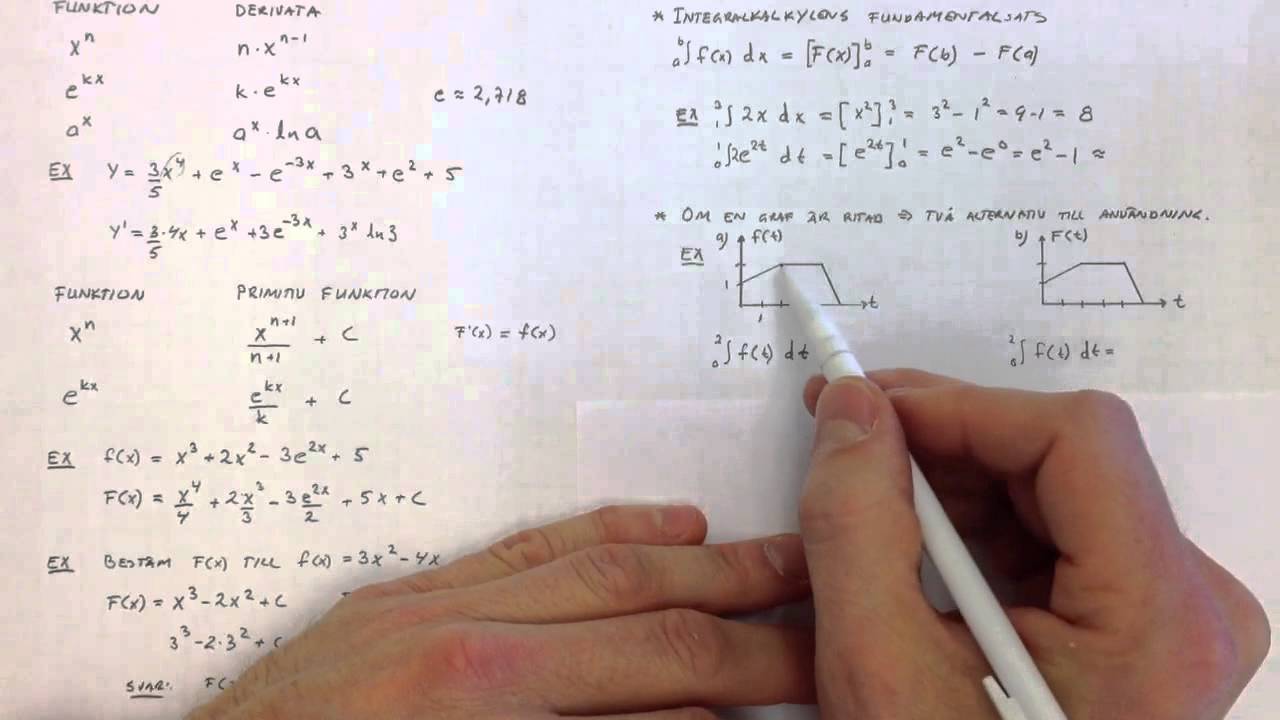 FUNKTION DERIVATA
xⁿ n·xⁿ⁻¹
e^{kx} k·e^{kx} e ≈ 2,718
a^x a^x·ln a
EX Y = 3/5 x⁴ + e^x - e^{-3x} + 3^x + e² + 5
Y' = 3/5 · 4x + e^x + 3e^{-3x} + 3^x ln 3
FUNKTION PRIMITIV FUNKTION
xⁿ x^{n+1}/(n+1) + C F'(x) = f(x)
e^{kx} e^{kx}/k + C
EX f(x) = x³ + 2x² - 3e^{2x} + 5
F(x) = x⁴/4 + 2·x³/3 - 3e^{2x}/2 + 5x + C
EX BESTÄM F(x) TILL f(x) = 3x² - 4x
F(x) = x³ - 2x² + C
3³ - 2·3² + C
SVAR: F(
* INTEGRALKALKYLENS FUNDAMENTALSATS
_a^b∫ f(x) dx = [F(x)]_a^b = F(b) - F(a)
EX _1^3∫ 2x dx = [x²]_1^3 = 3² - 1² = 9-1 = 8
_0^1∫ 2e^{2t} dt = [e^{2t}]_0^1 = e² - e⁰ = e² - 1 ≈
* OM EN GRAF ÄR RITAD ⇒ TVÅ ALTERNATIV TILL ANVÄNDNING.
EX a) f(t) b) F(t)
1 1 t t
_0^2∫ f(t) dt _0^2∫ f(t) dt =